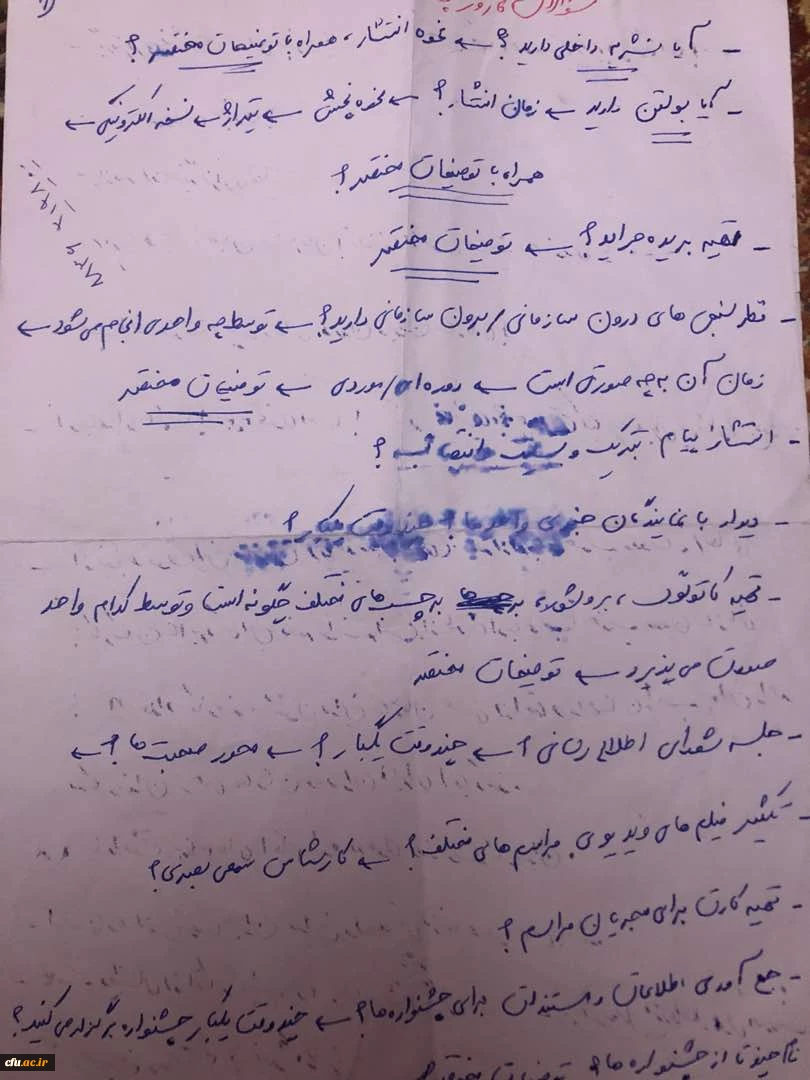 سؤالات کارورزی
- آیا نشریه داخلی دارید؟ ← نحوه انتشار، همراه با توضیحات مختصر؟
- آیا بولتن دارید ← زمان انتشار؟ ← نحوه پخش ← تیراژ ← نسخه الکترونیکی ←
همراه با توضیحات مختصر؟
- تهیه بریده جراید؟ ← توضیحات مختصر
- نظر سنجی های درون سازمانی / برون سازمانی دارید؟ ← توسط چه واحدی انجام می شود ←
زمان آن به چه صورتی است ← دوره ای / موردی ← توضیحات مختصر
- انتشار پیام تبریک و تسلیت انتصاب ؟
- دیدار با نمایندگان خبری چند وقت یکبار؟
- تهیه کاتولوگ، بروشور، برچسب های مختلف چگونه است و توسط کدام واحد
صورت می پذیرد ← توضیحات مختصر
- جلسه شورای اطلاع رسانی ؟ ← چند وقت یکبار؟ ← محور صحبت ها؟ ←
- تکثیر فیلم های ویدیویی مراسم های مختلف؟ ← کارشناس سمعی بصری؟
- تهیه کارت برای مجریان مراسم؟
- جمع آوری اطلاعات و مستندات برای جشنواره ها؟ ← چند وقت یکبار جشنواره برگزار می کنید؟
نام چند تا از جشنواره ها؟ توضیحات مختصر؟
cfu.ac.ir